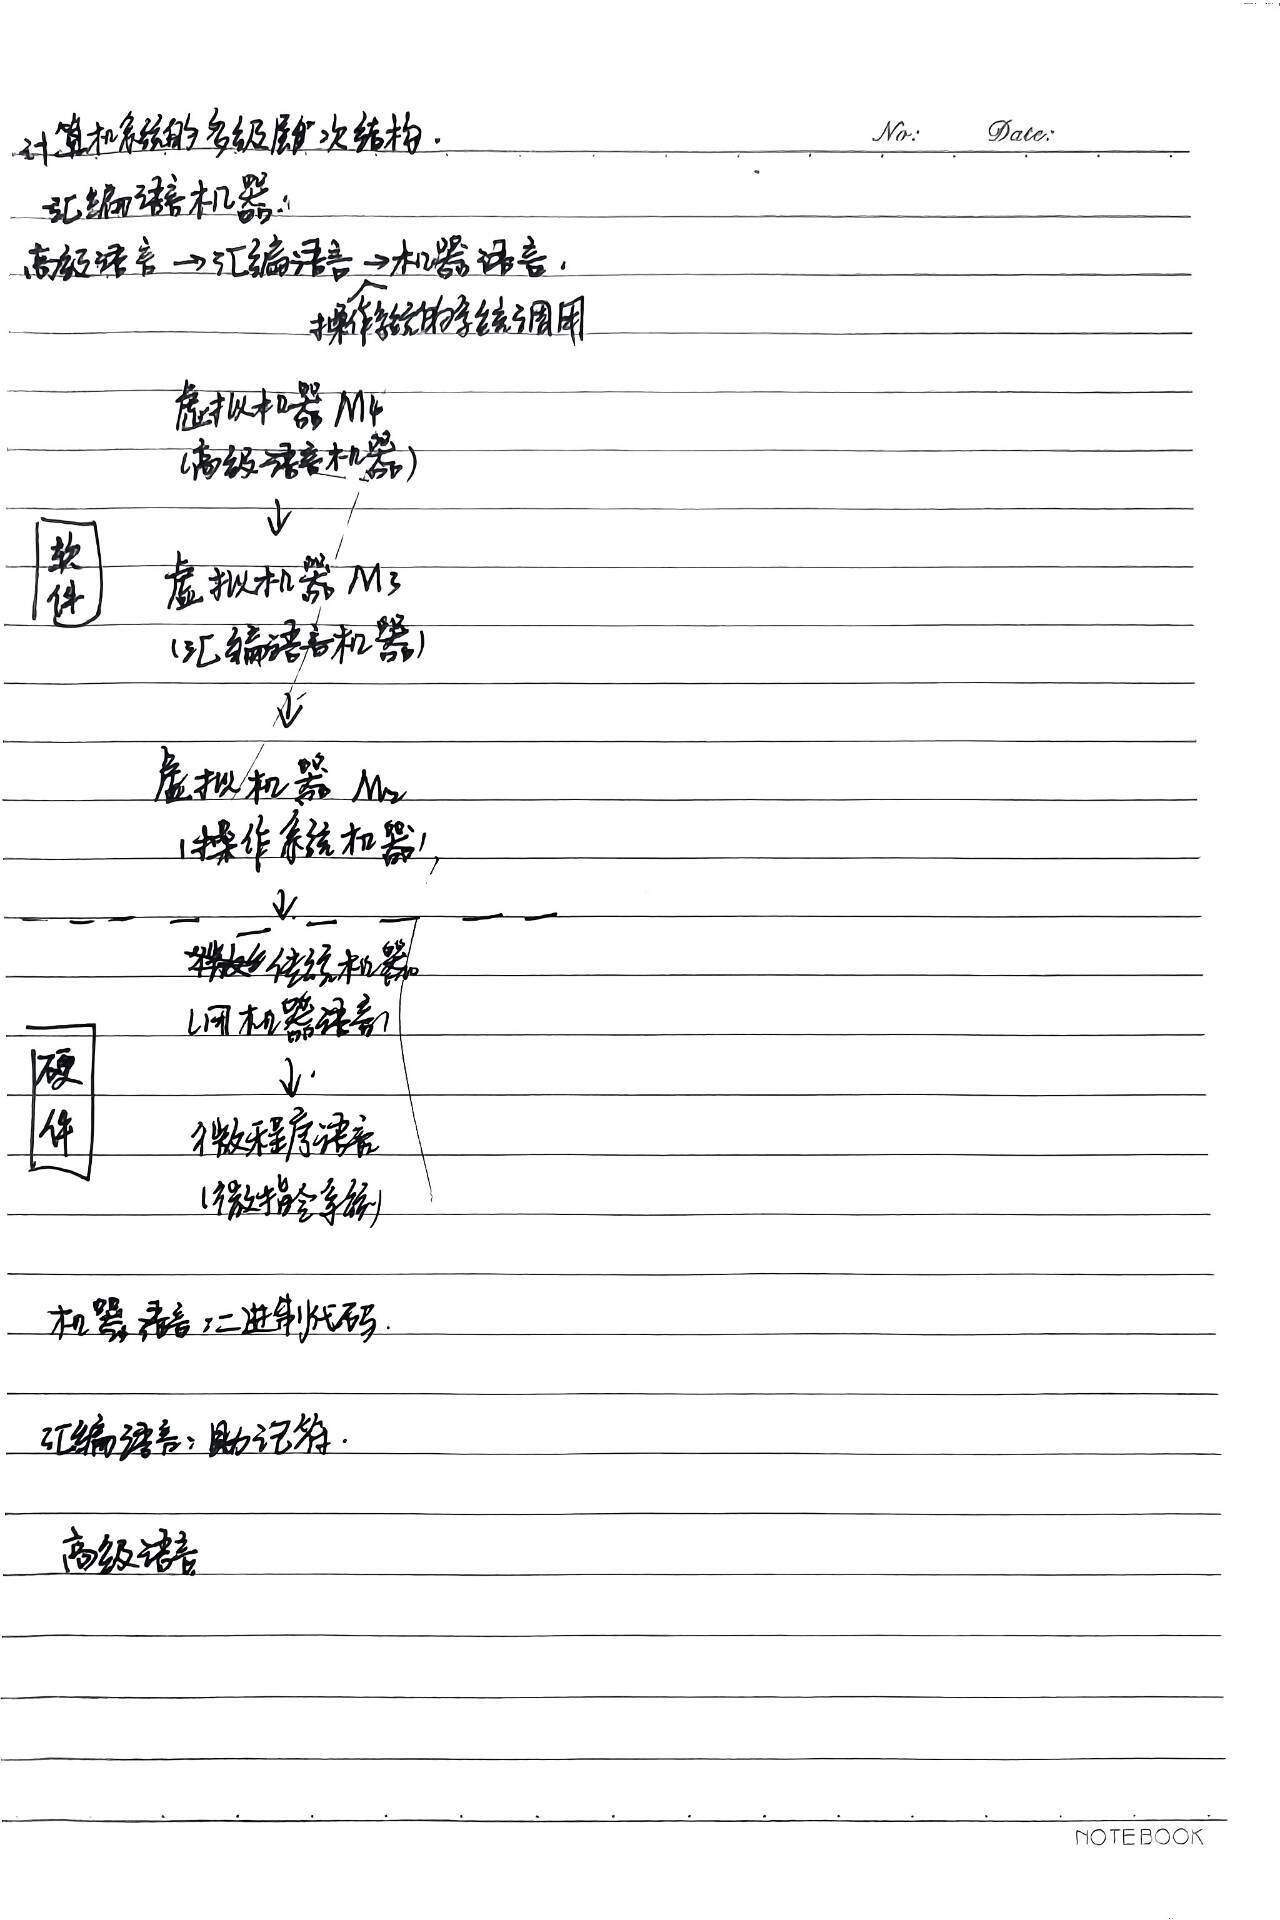 No: Date:
计算机系统的多级层次结构.
汇编语言机器:
高级语言→汇编语言→机器语言.
操作系统的系统调用
虚拟机器 M4
(高级语言机器)
↓
软件
虚拟机器 M3
(汇编语言机器)
↓
虚拟机器 M2
(操作系统机器)
↓
传统机器
(用机器语言)
硬件
↓
微程序语言
(微指令系统)
机器语言:二进制代码.
汇编语言:助记符.
高级语言
NOTEBOOK